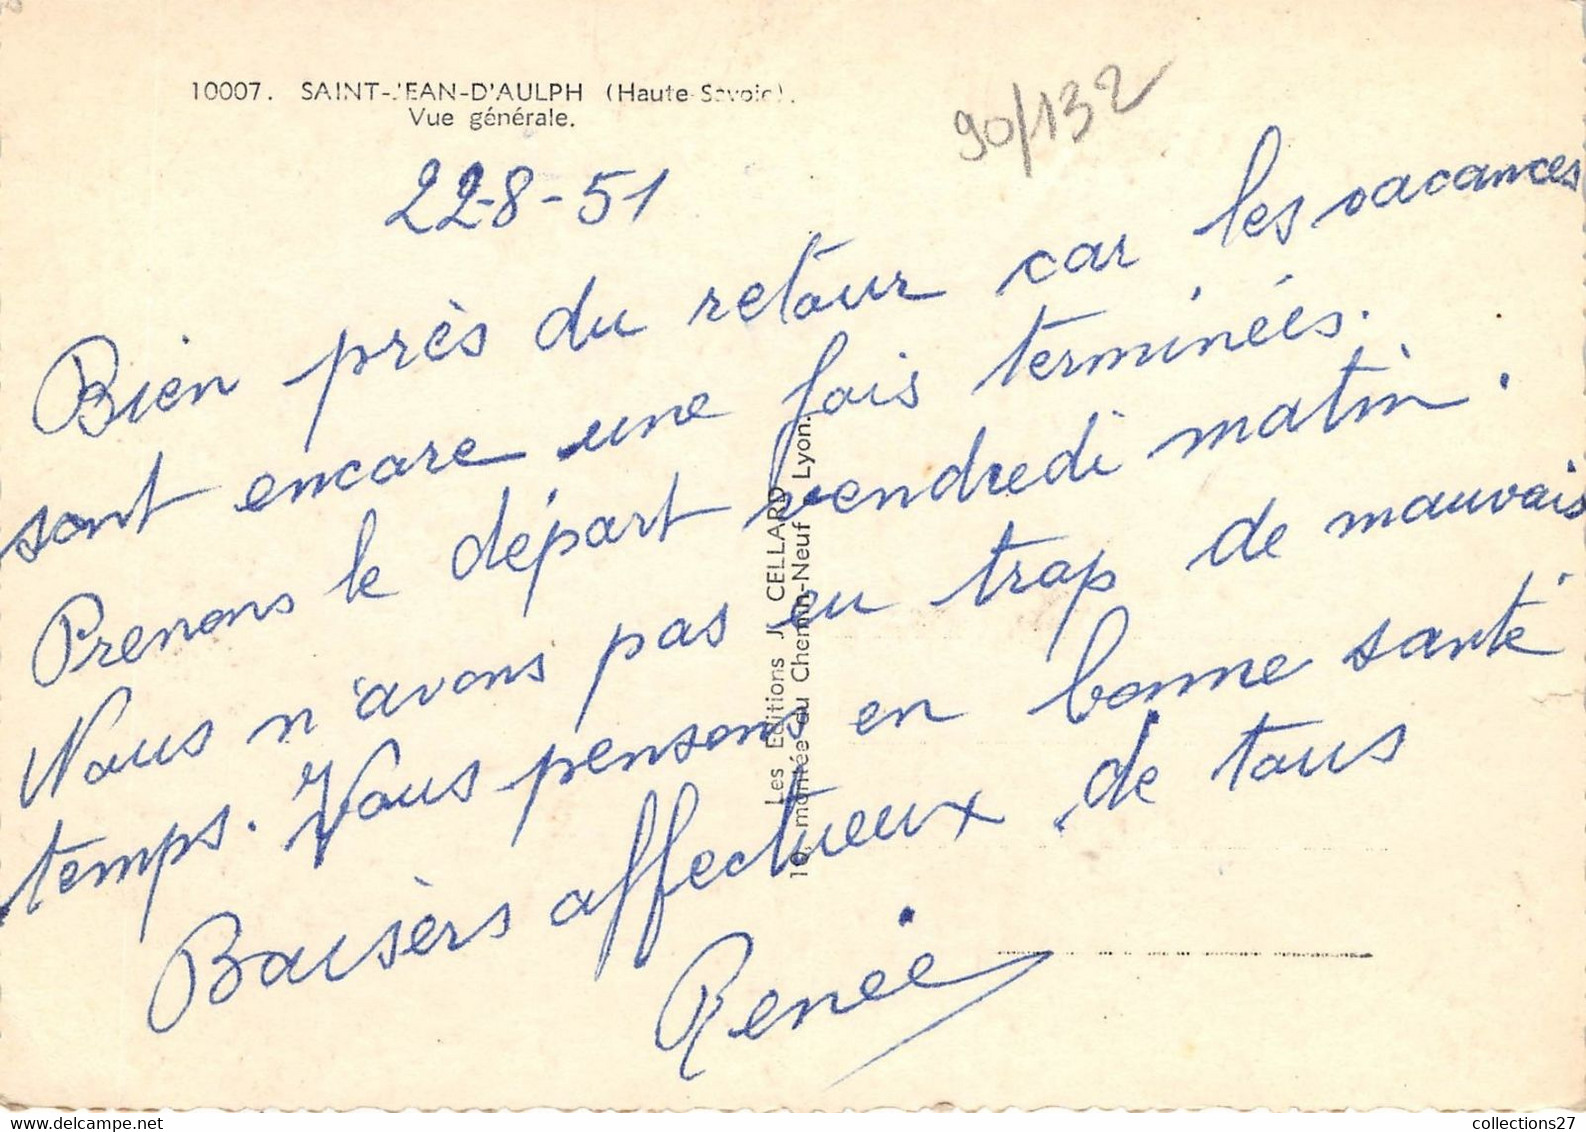 10007. SAINT-JEAN-D'AULPH (Haute-Savoie).
Vue générale.
90/132
22-8-51
Bien près du retour car les vacances
sont encore une fois terminées.
Prenons le départ vendredi matin.
Nous n'avons pas eu trop de mauvais
temps. Vous pensons en bonne santé
Baisers affectueux de tous
Renée
Les Editions J. CELLARD
19, montée du Chemin-Neuf - Lyon.
www.delcampe.net
collections27